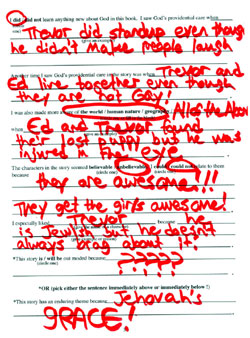 I did / did not learn anything new about God in this book. I saw God's providential care when
Trevor did standup even though
he didn't make people laugh
Another time I saw God's providential care in the story was when Trevor and
Ed live together even though
they are not Gay!
I was also made more aware of the world / human nature / geography
All of the Above
Ed and Trevor found
their lost puppy but he was
injured
The characters in the story seemed believable / unbelievable. I could / could not relate to them
because
they are awesome!!!
They get the girls awesome!
I especially liked Trevor because he
is Jewish & he doesn't
always brag about it!
*This story is / will be out moded because
(circle one)
?????
*OR (pick either the sentence immediately above or immediately below!)
*This story has an enduring theme because Jehovah's
GRACE!